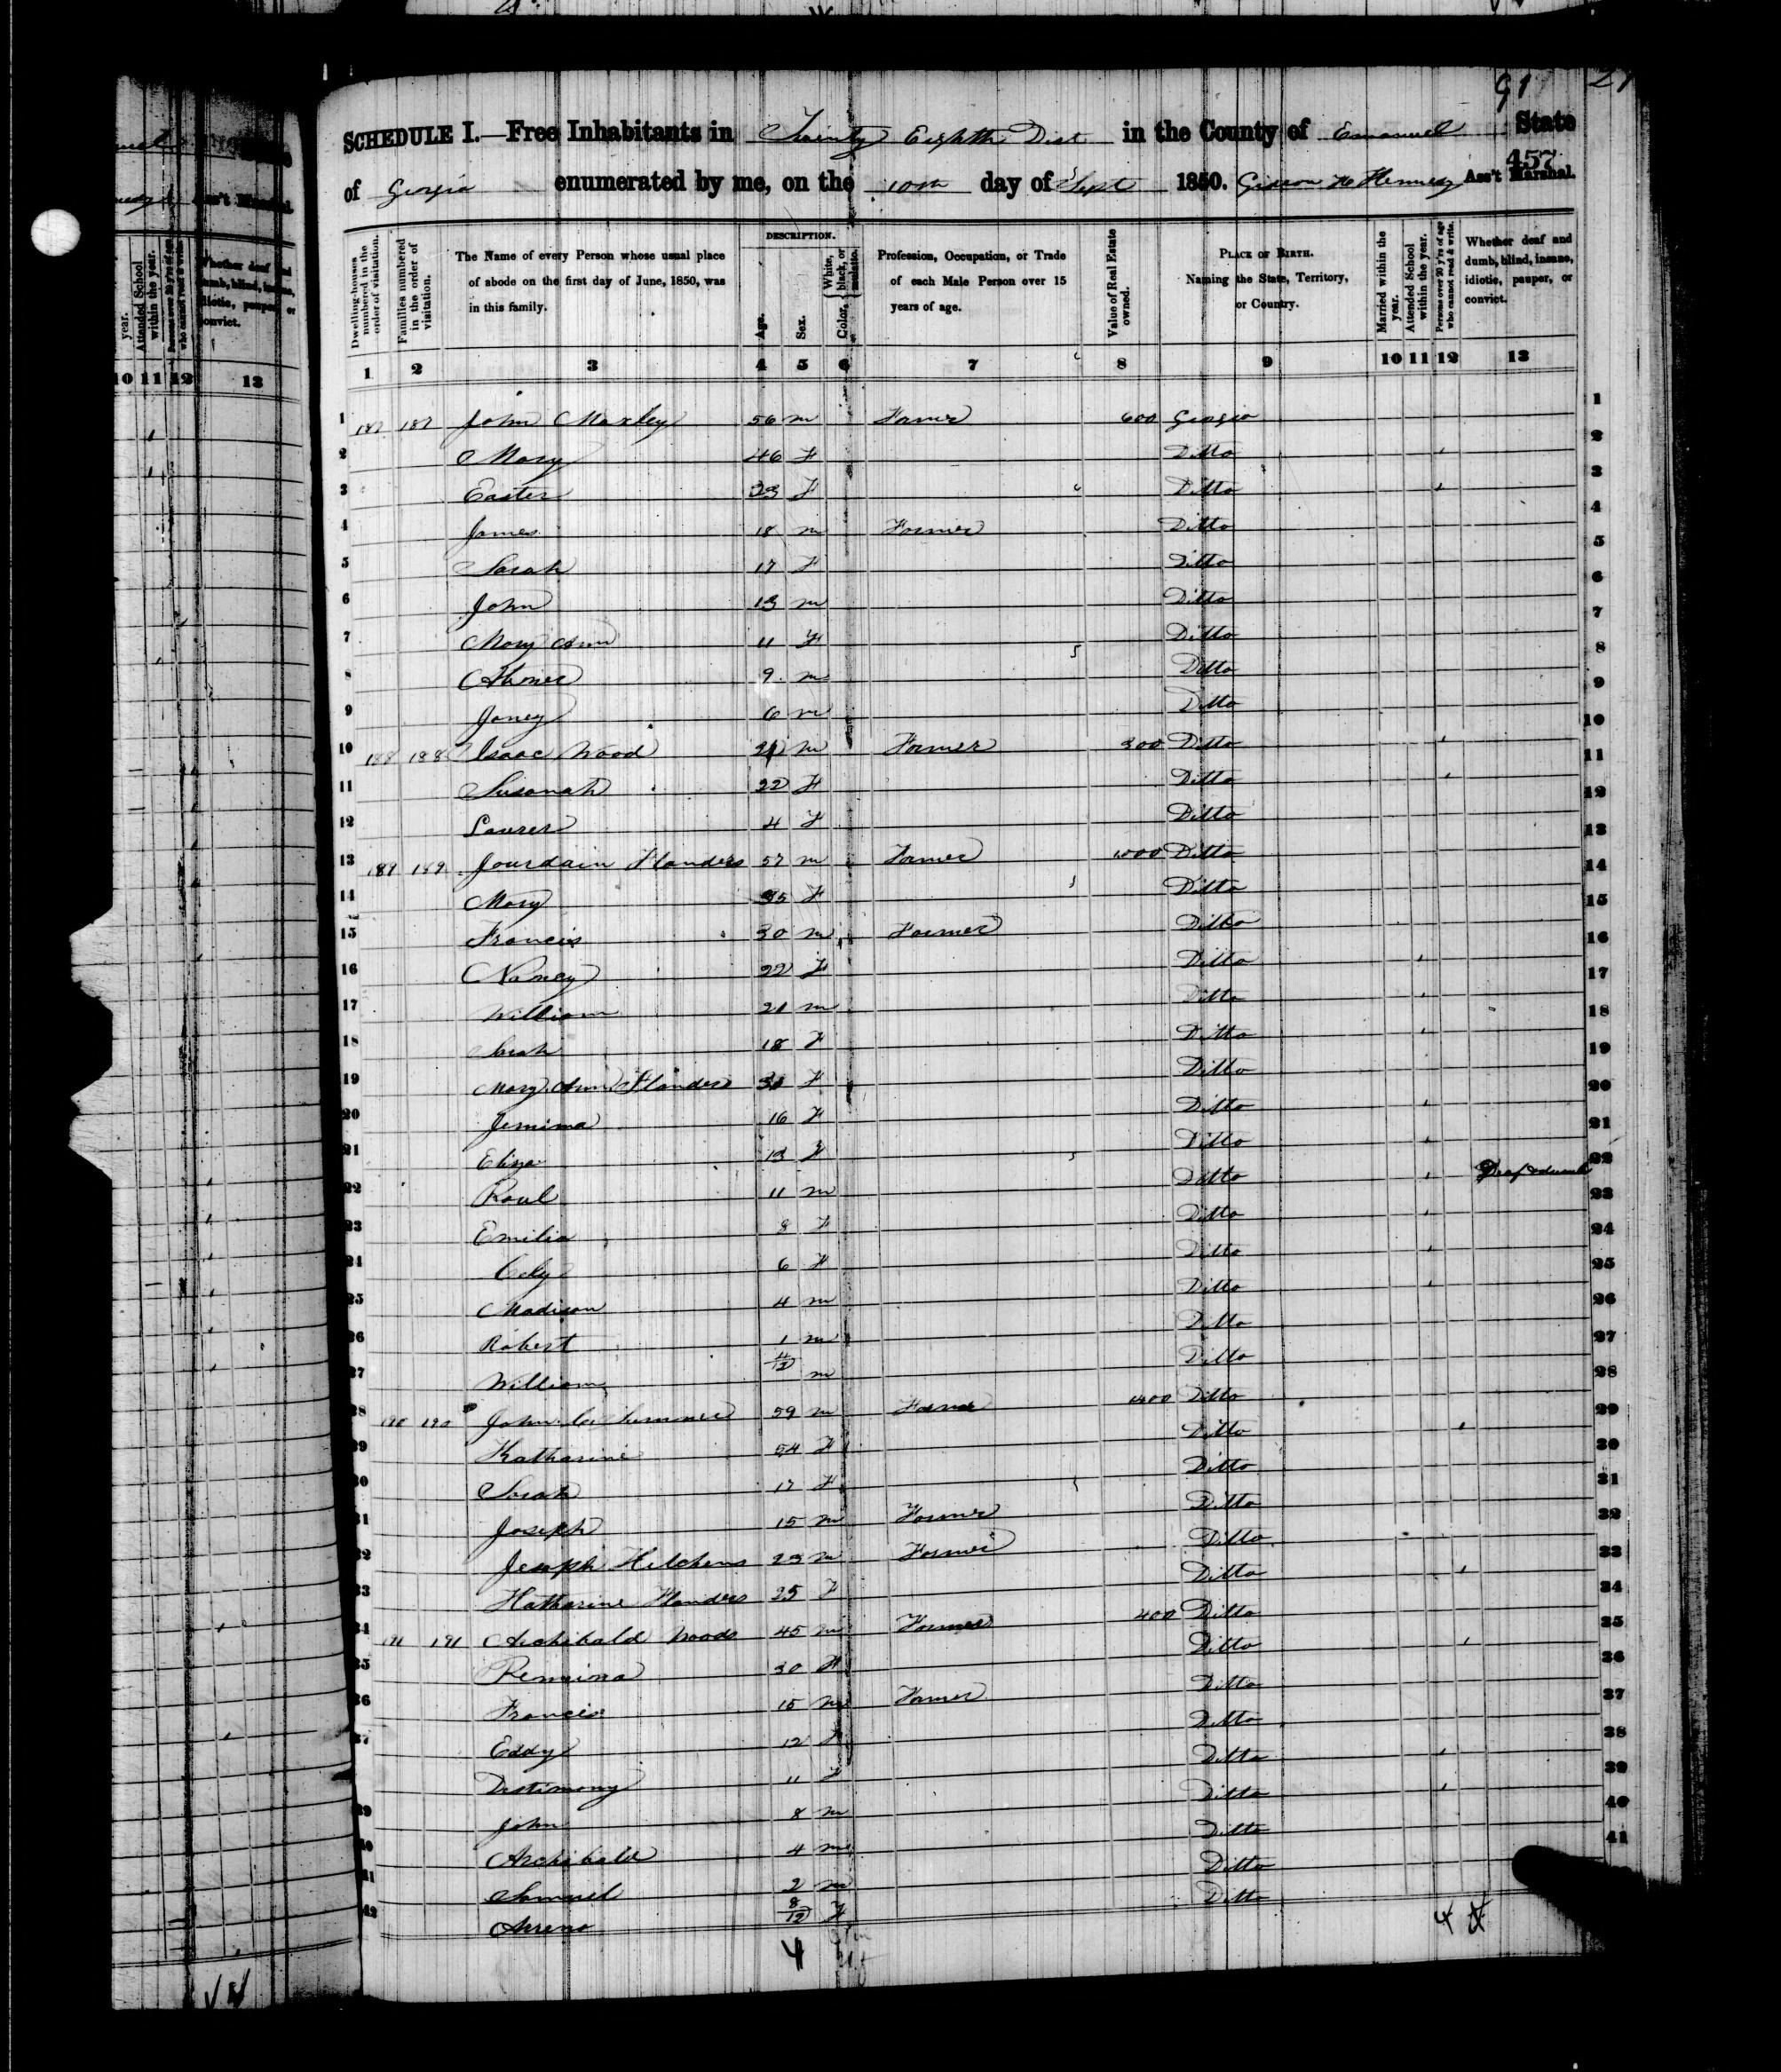 91
SCHEDULE I.—Free Inhabitants in Twenty Eighth Dist in the County of Emanuel State
457
of Georgia enumerated by me, on the 10th day of Sept 1850. Ass't Marshal.
Dwelling-houses numbered in the order of visitation.
Families numbered in the order of visitation.
The Name of every Person whose usual place of abode on the first day of June, 1850, was in this family.
DESCRIPTION.
Age.
Sex.
Color, White, black, or mulatto.
Profession, Occupation, or Trade of each Male Person over 15 years of age.
Value of Real Estate owned.
PLACE OF BIRTH. Naming the State, Territory, or Country.
Married within the year.
Attended School within the year.
Persons over 20 y'rs of age who cannot read & write.
Whether deaf and dumb, blind, insane, idiotic, pauper, or convict.
1 2 3 4 5 6 7 8 9 10 11 12 13
1 187 187 John Moxley 56 m Farmer 600 Georgia 1
2 Mary 46 F Ditto 2
3 Easter 23 F Ditto 3
4 James 18 m Farmer Ditto 4
5 Sarah 17 F Ditto 5
6 John 13 m Ditto 6
7 Mary Ann 11 F Ditto 7
8 9 m Ditto 8
9 6 m Ditto 9
10 188 188 Isaac Wood m Farmer 300 Ditto 10
11 Susanah 22 F Ditto 11
12 4 F Ditto 12
13 189 189 Jourdain Flanders 57 m Farmer 1000 Ditto 13
14 Mary F Ditto 14
15 Francis 30 m Farmer Ditto 15
16 Nancy 22 F Ditto 16
17 William 21 m Ditto 17
18 Sarah 18 F Ditto 18
19 Mary Ann Flanders F Ditto 19
20 Jemima 16 F Ditto 20
21 Eliza 13 F Ditto 21
22 11 m Ditto Deaf & dumb 22
23 Emilia 8 F Ditto 23
24 6 F Ditto 24
25 Madison 4 m Ditto 25
26 Robert 1 m Ditto 26
27 William 4/12 m Ditto 27
28 190 190 John C. Sumner 59 m Farmer Ditto 28
29 Katharine 54 F Ditto 29
30 Sarah 17 F Ditto 30
31 Joseph 15 m Farmer Ditto 31
32 Joseph Hitchens 23 m Farmer Ditto 32
33 Katharine Flanders 25 F Ditto 33
34 191 191 Archibald Woods 45 m Farmer 400 Ditto 34
35 30 F Ditto 35
36 Francis 15 m Farmer Ditto 36
37 Eddy 12 F Ditto 37
38 Destimony 11 F Ditto 38
39 John 8 m Ditto 39
40 Archibald 4 m Ditto 40
41 Samuel 2 m Ditto 41
42 8/12 F Ditto
4